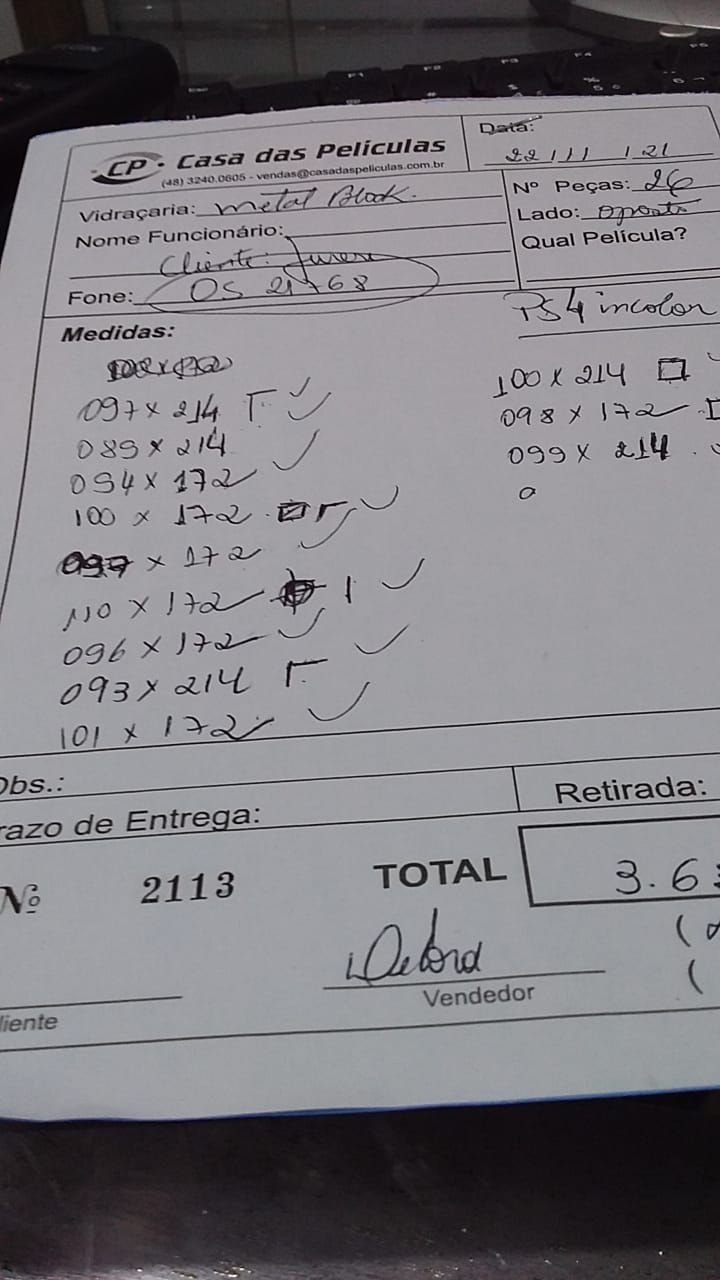 CP · Casa das Películas
(48) 3240.0605 - vendas@casadaspeliculas.com.br
Data: 22/11/21
Vidraçaria: Metal Block.
Nº Peças: 26
Nome Funcionário:
Lado: oposto
Cliente: Jurere
Qual Película?
Fone: OS 21768
PS4 incolor
Medidas:
097 x 214
089 x 214
094 x 172
100 x 172
097 x 172
110 x 172
096 x 172
093 x 214
101 x 172
100 x 214
098 x 172
099 x 214
Obs.:
razo de Entrega:
Retirada:
Nº 2113
TOTAL 3.6
Vendedor
liente